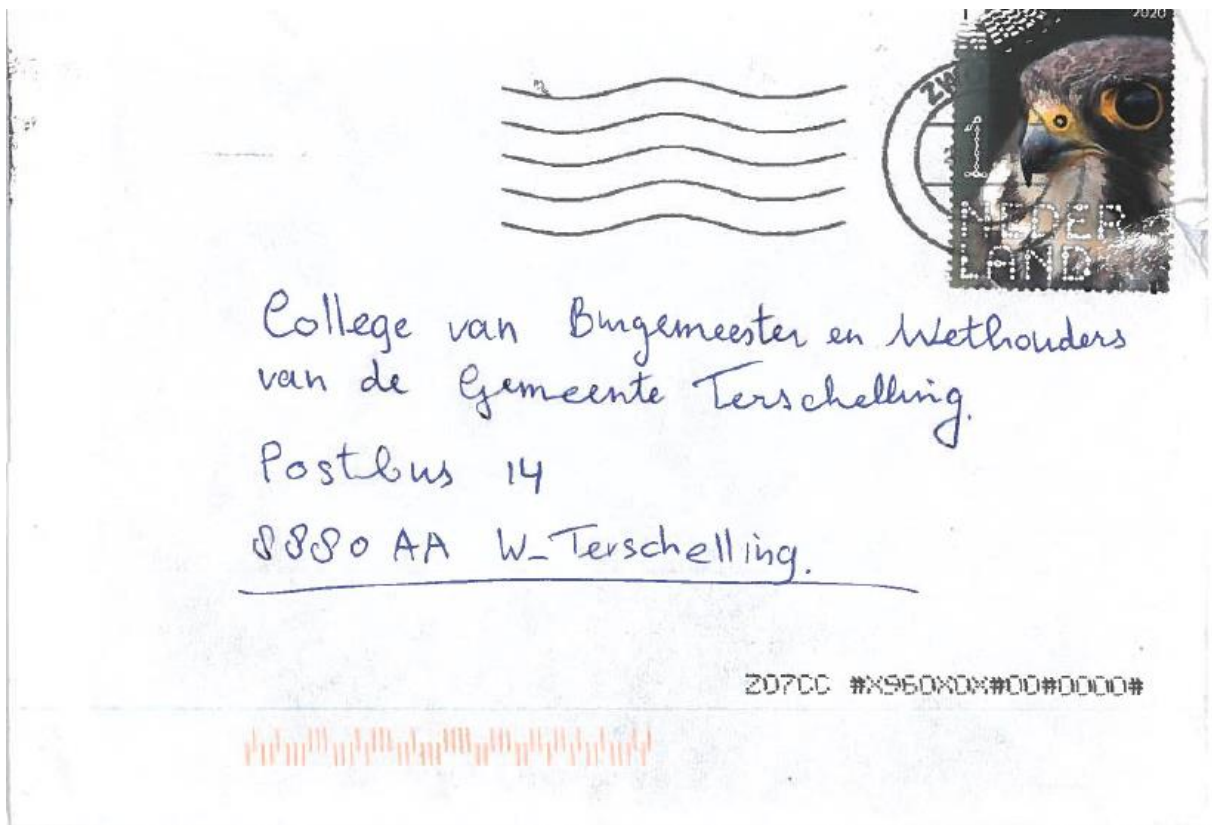 2020
ZW
1
NEDER
LAND
College van Burgemeester en Wethouders
van de Gemeente Terschelling.
Postbus 14
8880 AA W-Terschelling.
Z07CC #X960X0X#00#0000#